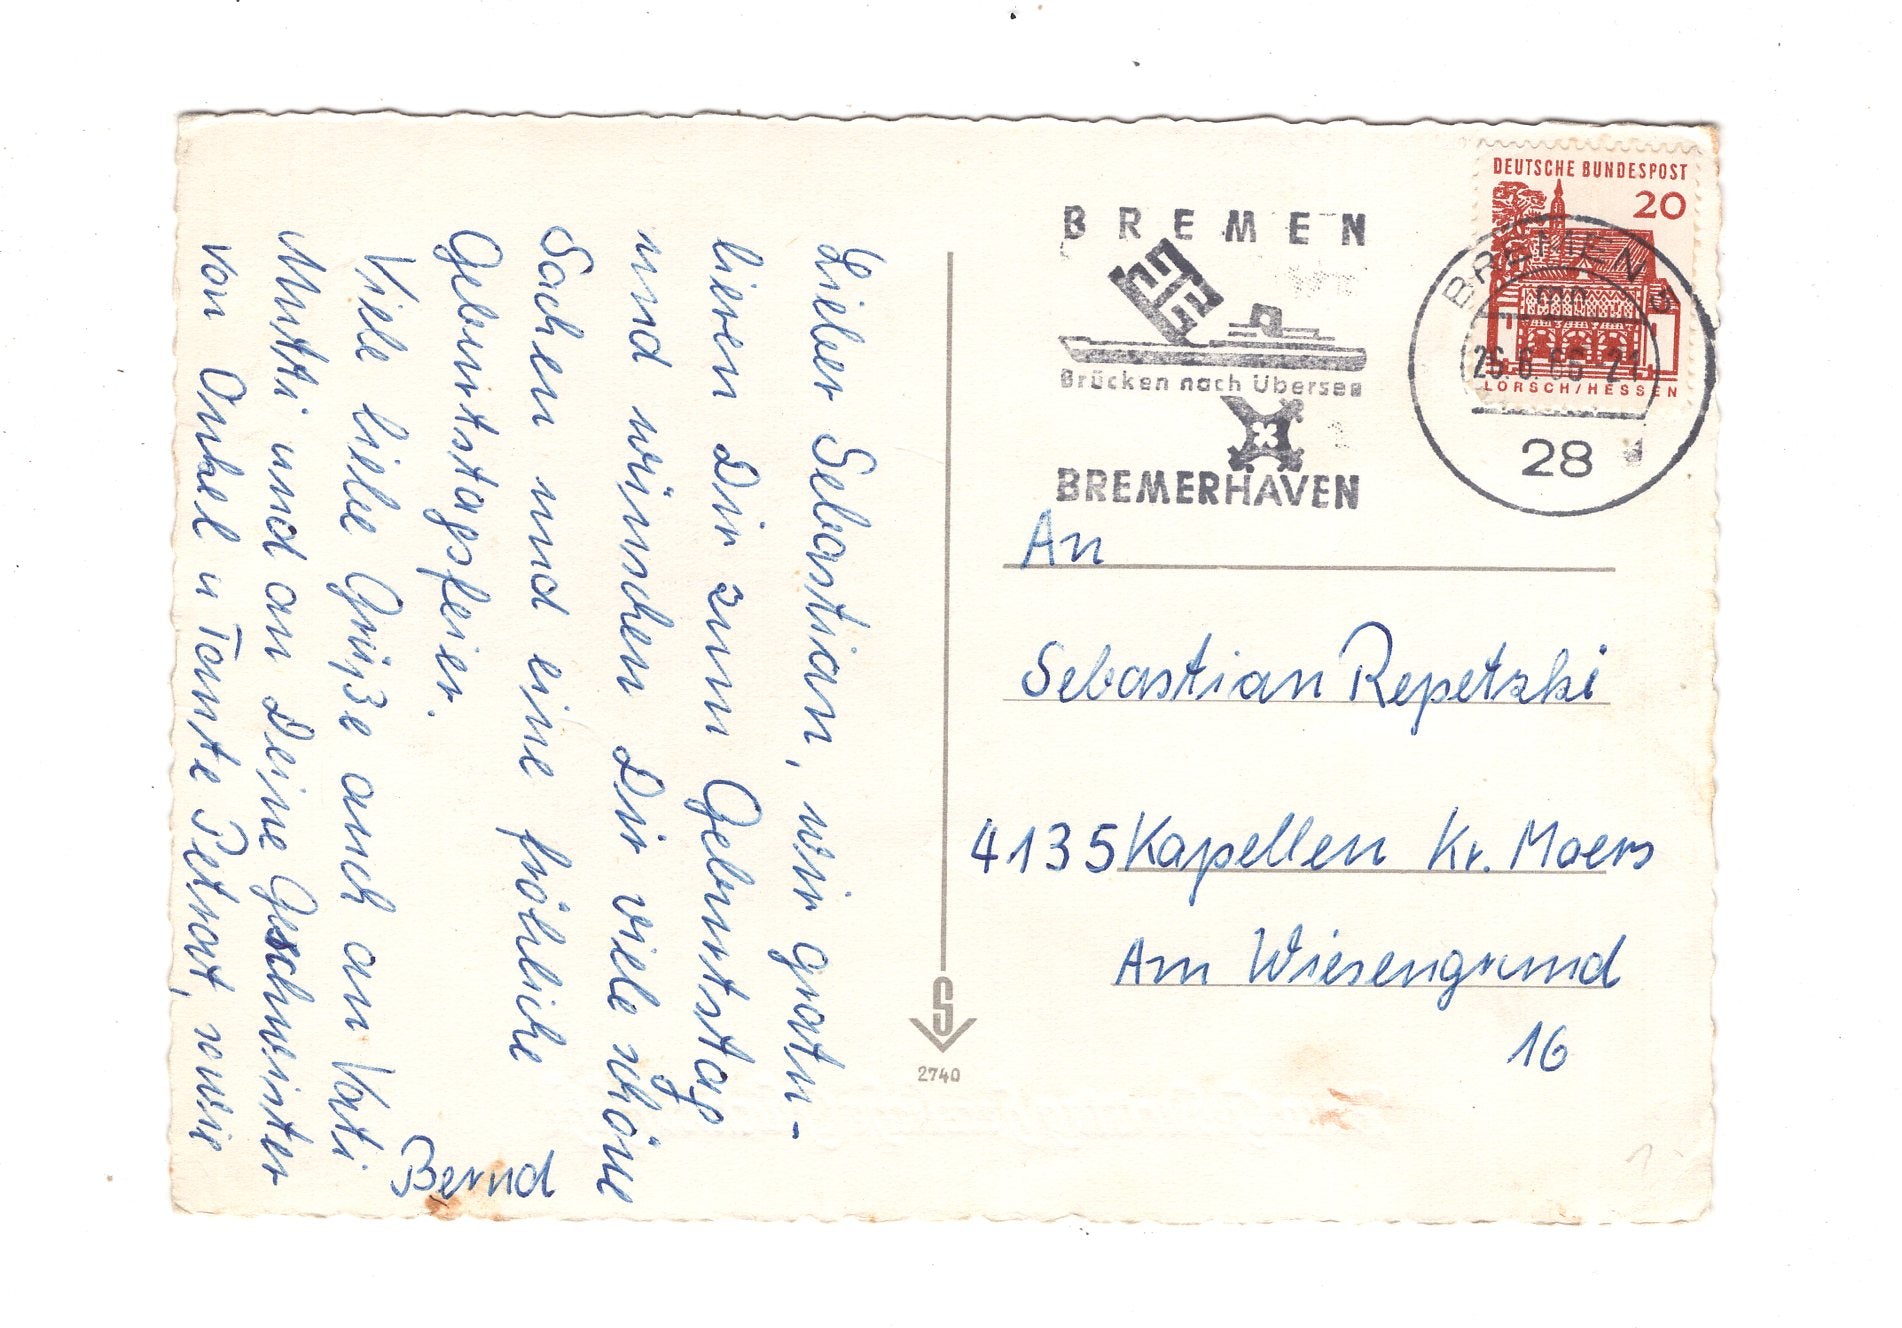 Lieber Sebastian, wir gratu-
lieren Dir zum Geburtstag
und wünschen Dir viele schöne
Sachen und eine fröhliche
Geburtstagsfeier.
Viele liebe Grüße auch an Vati
Mutti und an Deine Geschwister
von Onkel u Tante Petrat, sowie
Bernd
S
2740
DEUTSCHE BUNDESPOST
20
LORSCH/HESSEN
BREMEN
Brücken nach Übersee
BREMERHAVEN
BREMEN 5
26.6.66-21
28
An
Sebastian Repetzki
4135 Kapellen Kr. Moers
Am Wiesengrund
16